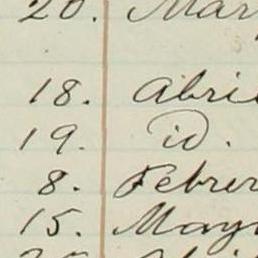 20. Mar
18. Abri
19. id.
8. Febrer
15. May